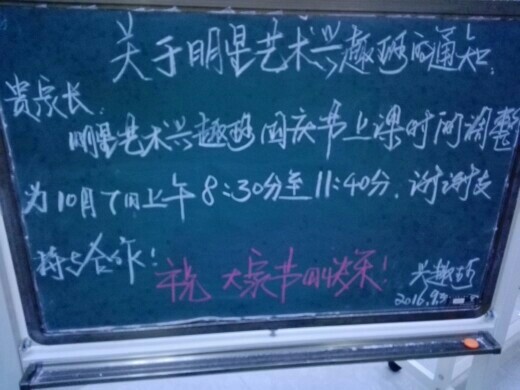 关于明星艺术兴趣班的通知:
贵家长:
明星艺术兴趣班国庆节上课时间调整
为10月7日上午8:30分至11:40分.谢谢支
持与合作!
祝大家节日快乐!
兴趣班
2016.9.